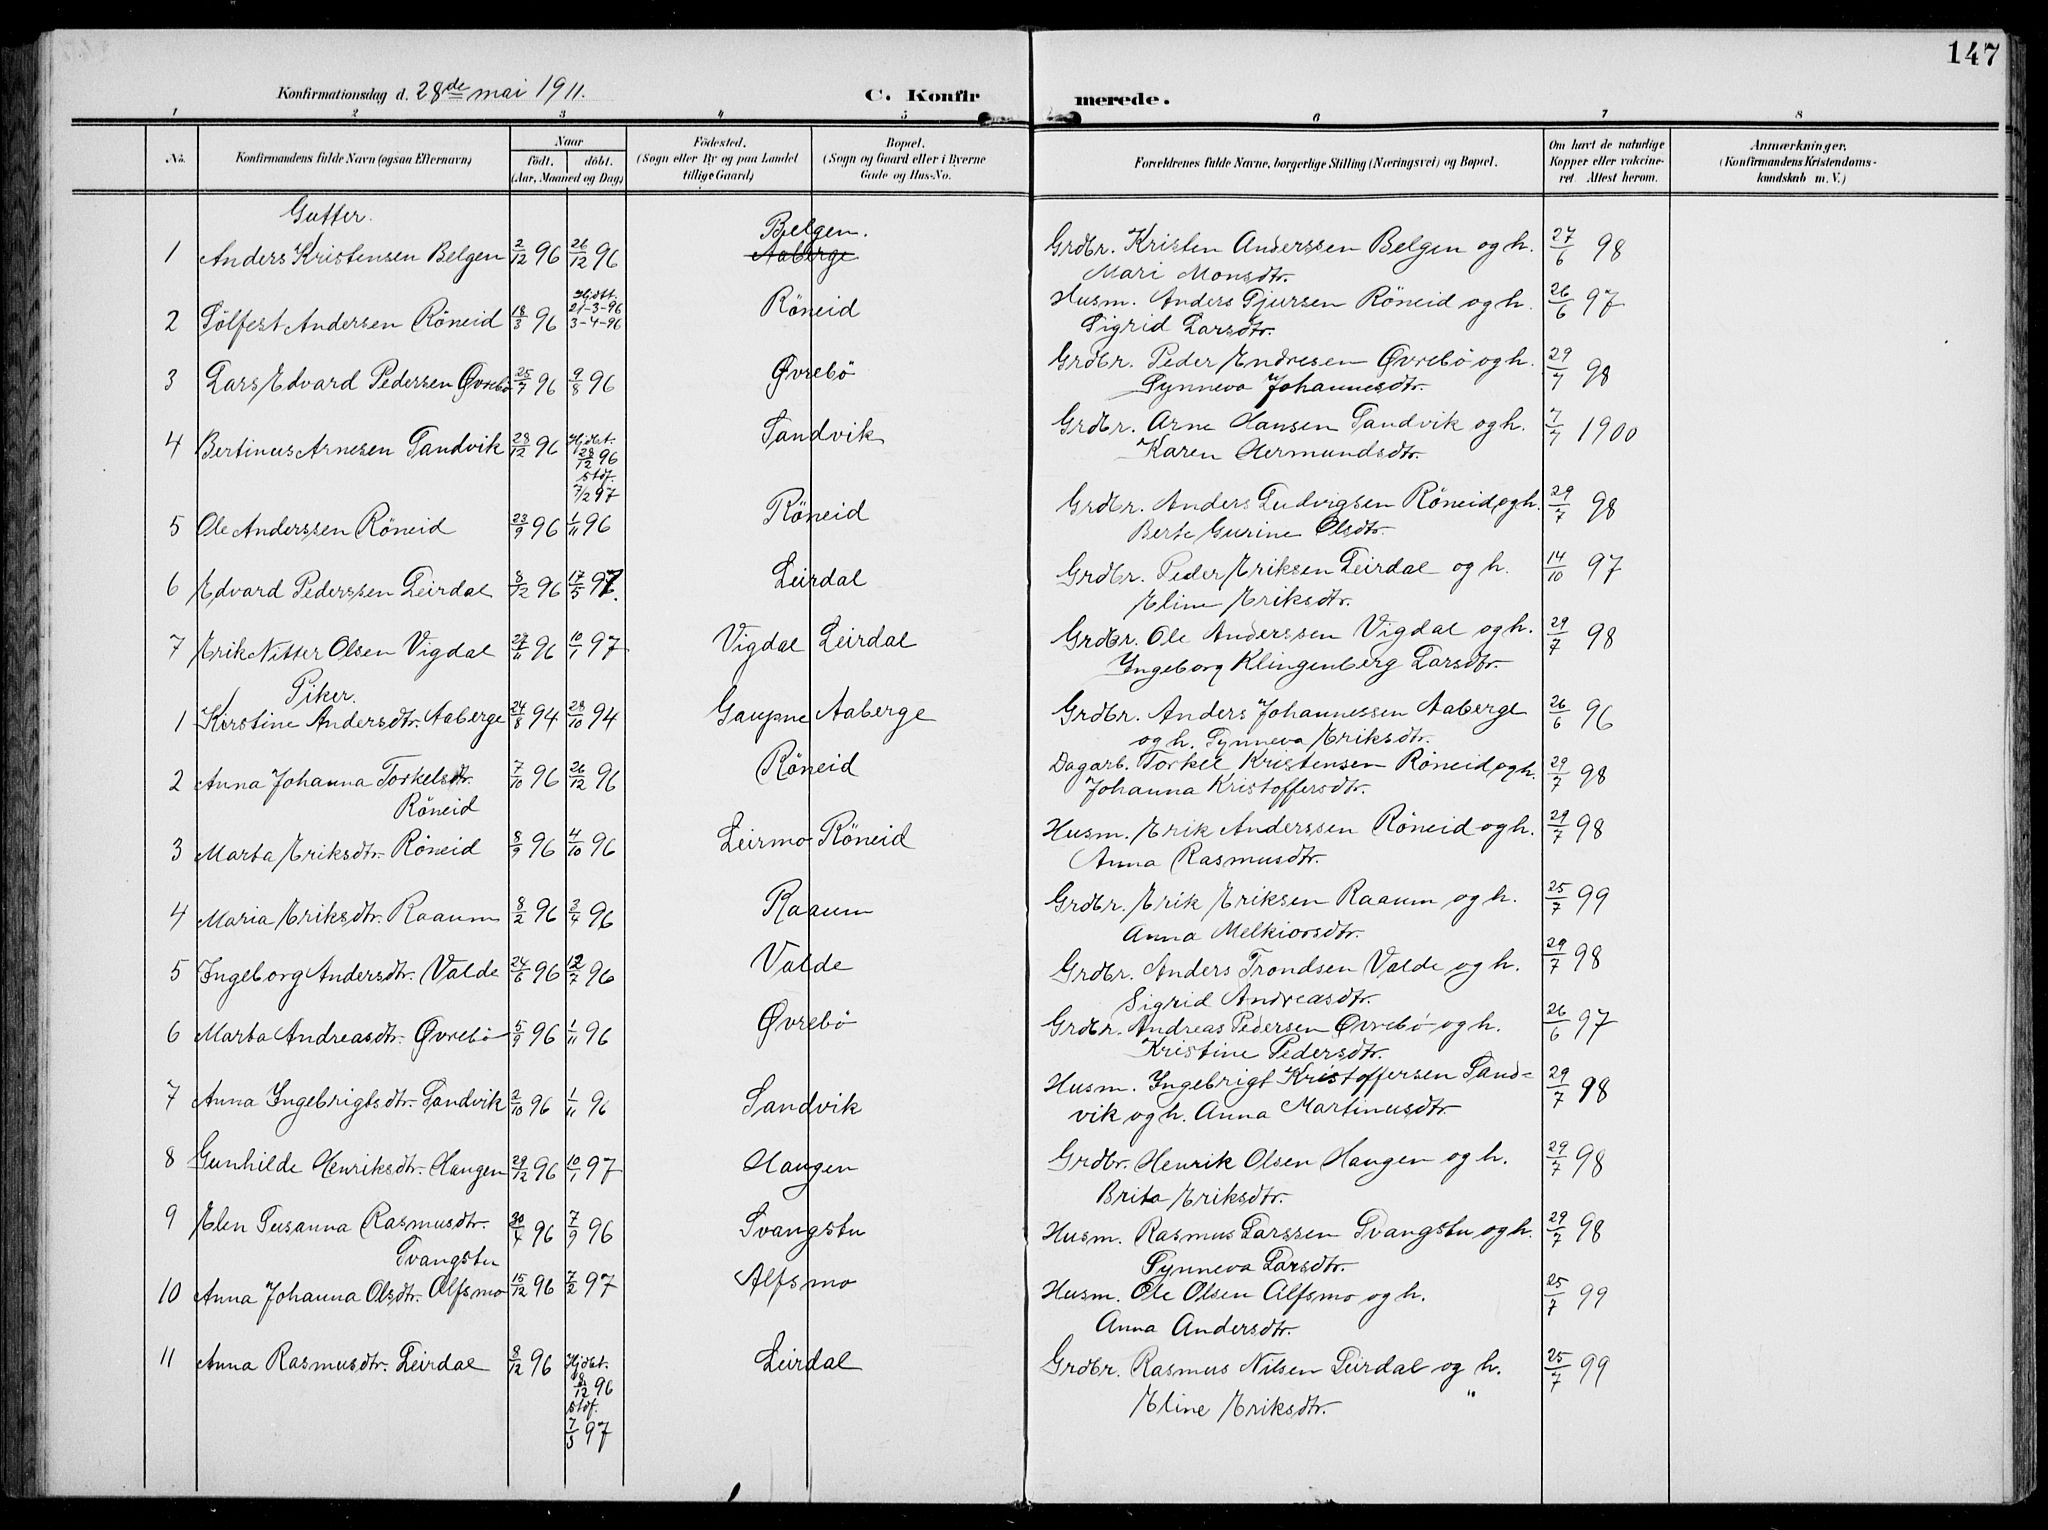 147
Konfirmationsdag d. 28de mai 1911.
C. Konfirmerede.
1 2 3 4 5 6 7 8
No. Konfirmandens fulde Navn (ogsaa Efternavn) Naar födt. döbt. (Aar, Maaned og Dag) Födested. (Sogn eller By og paa Landet tillige Gaard) Bopæl. (Sogn og Gaard eller i Byerne Gade og Hus-No. Forældrenes fulde Navne, borgerlige Stilling (Næringsvei) og Bopæl. Om havt de naturlige Kopper eller vakcineret. Attest herom. Anmærkninger, (Konfirmandens Kristendomskundskab m. V.)
Gutter.
1 Anders Kristensen Belgen 2/12 96 26/12 96 Belgen. Aaberge Grdbr. Kristen Anderssen Belgen og h. 27/6 98
Mari Monsdtr.
2 Sölfest Andersen Röneid 18/3 96 Hjdtt. 21-3-96 3-4-96 Röneid Husm. Anders Gjursen Röneid og h. 26/6 97
Sigrid Larsdtr.
3 Lars Edvard Pedersen Øvrebö 25/7 96 9/8 96 Øvrebö Grdbr. Peder Endresen Øvrebö og h. 29/7 98
Synneva Johannesdtr.
4 Bertinus Arnesen Sandvik 28/12 96 Hjdbt. 28/12 96 stdf. 7/2 97 Sandvik Grdbr. Arne Hansen Sandvik og h. 7/7 1900
Karen Hermundsdtr.
5 Ole Anderssen Röneid 23/9 96 1/11 96 Röneid Grdbr. Anders Ludvigsen Röneid og h. 29/7 98
Berte Gurine Olsdtr.
6 Edvard Pederssen Leirdal 8/12 96 17/5 97. Leirdal Grdbr. Peder Eriksen Leirdal og h. 14/10 97
Eline Eriksdtr.
7 Erik Nitter Olsen Vigdal 27/11 96 10/1 97 Vigdal Leirdal Grdbr. Ole Anderssen Vigdal og h. 29/7 98
Ingeborg Klingenberg Larsdtr.
Piker.
1 Kirstine Andersdtr. Aaberge 24/8 94 28/10 94 Gaupne Aaberge Grdbr. Anders Johannessen Aaberge 26/6 96
og h. Synneva Eriksdtr.
2 Anna Johanna Torkelsdtr. 7/10 96 26/12 96 Röneid Dagarb. Torkel Kristensen Röneid og h. 29/7 98
Röneid Johanna Kristoffersdtr.
3 Marta Eriksdtr. Röneid 8/9 96 4/10 96 Leirmo Röneid Husm. Erik Anderssen Röneid og h. 29/7 98
Anna Rasmusdtr.
4 Maria Eriksdtr. Raaum 8/2 96 3/4 96 Raaum Grdbr. Erik Eriksen Raaum og h. 25/7 99
Anna Melkiorsdtr.
5 Ingeborg Andersdtr. Valde 24/6 96 12/7 96 Valde Grdbr. Anders Trondsen Valde og h. 29/7 98
Sigrid Andreasdtr.
6 Marta Andreasdtr. Øvrebö 5/9 96 1/11 96 Øvrebö Grdbr. Andreas Pedersen Øvrebö og h. 26/6 97
Kristine Pedersdtr.
7 Anna Ingebrigtsdtr. Sandvik 2/10 96 1/11 96 Sandvik Husm. Ingebrigt Kristoffersen Sand= 29/7 98
vik og h. Anna Martinusdtr.
8 Gunhilde Henriksdtr. Haugen 29/12 96 10/1 97 Haugen Grdbr. Henrik Olsen Haugen og h. 29/7 98
Brita Eriksdtr.
9 Elen Susanna Rasmusdtr. 30/4 96 7/9 96 Svangstu Husm. Rasmus Larssen Svangstu og h. 29/7 98
Svangstu Synneva Larsdtr.
10 Anna Johanna Olsdtr. Alfsmo 15/12 96 7/2 97 Alfsmo Husm. Ole Olsen Alfsmo og h. 25/7 99
Anna Andersdtr.
11 Anna Rasmusdtr. Leirdal 8/12 96 Hjdbt. 8/12 96 stdf. 7/5 97 Leirdal Grdbr. Rasmus Nilsen Leirdal og h. 25/7 99
Eline Eriksdtr. "